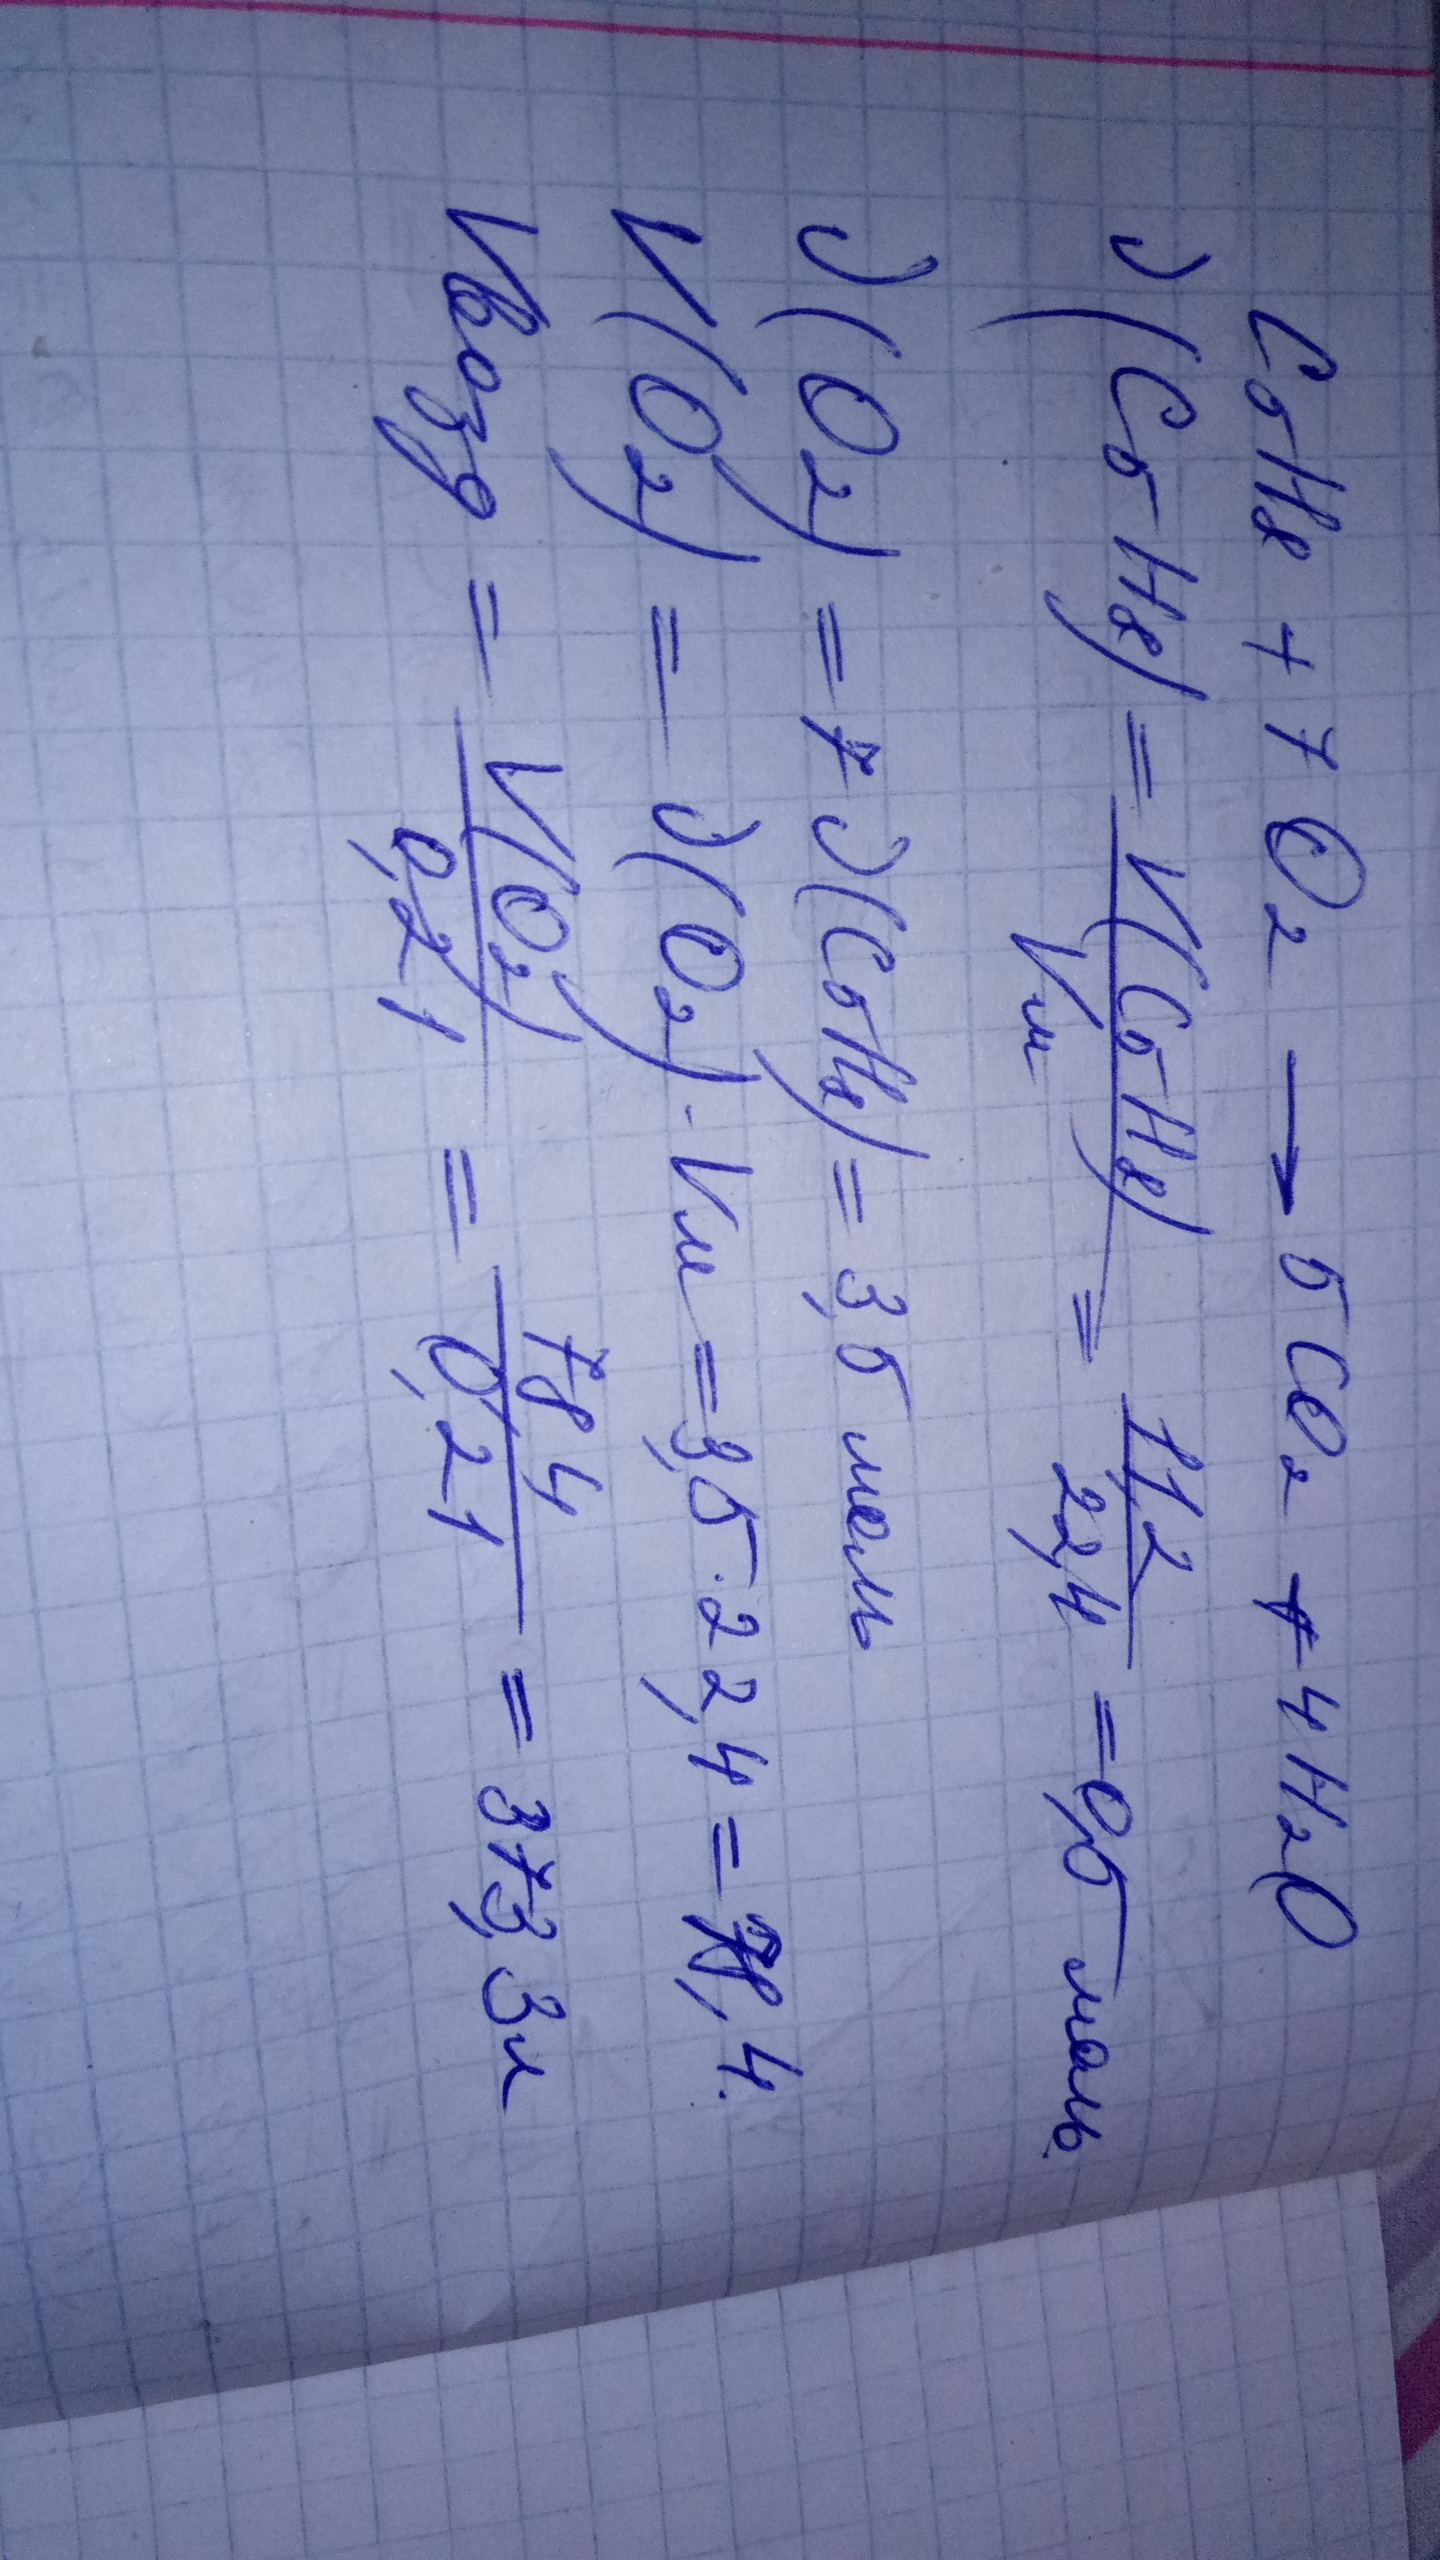 C5H8 + 7O2 → 5CO2 + 4H2O
ν(C5H8) = V(C5H8)/Vм = 11,2/22,4 = 0,5 моль
ν(O2) = 7 ν(C5H8) = 3,5 моль
V(O2) = ν(O2) · Vм = 3,5 · 22,4 = 78,4
Vвозд = V(O2)/0,21 = 78,4/0,21 = 373,3л